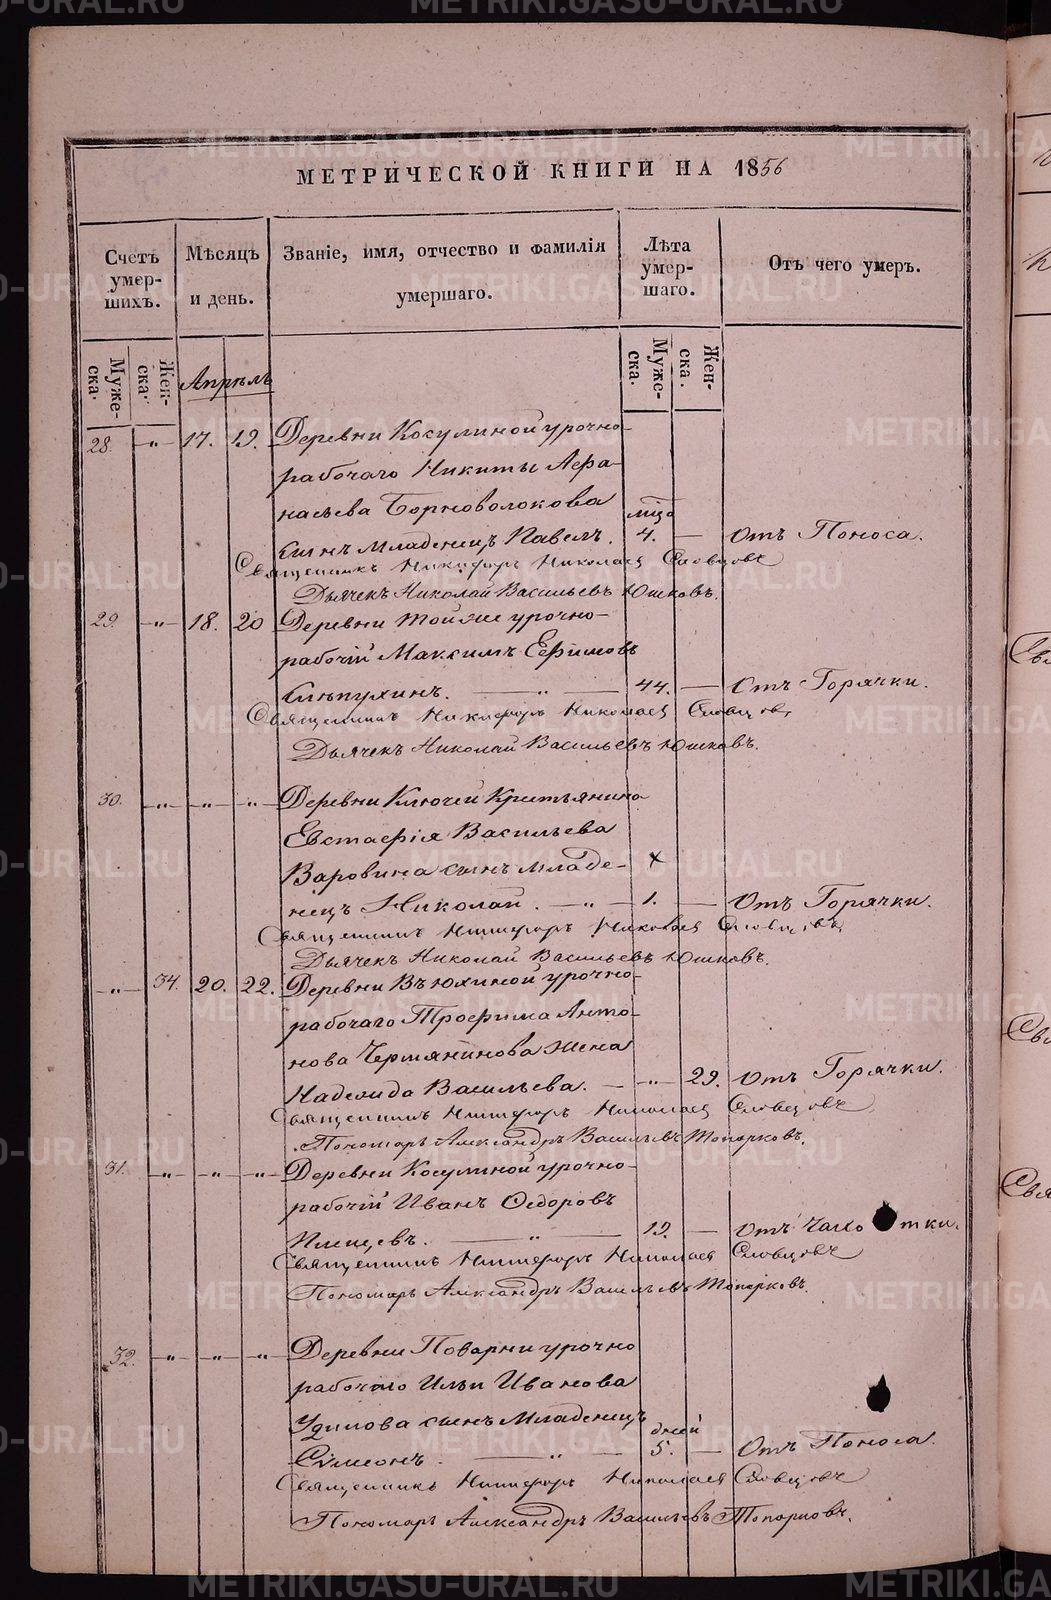 МЕТРИЧЕСКОЙ КНИГИ НА 1856
Счетъ умер-шихъ. Мѣсяцъ и день. Званіе, имя, отчество и фамилія умершаго. Лѣта умер-шаго. Отъ чего умеръ.
Муже-ска. Жен-ска. Муже-ска. Жен-ска.
Апрѣль
28. — „ — 17. 19. Деревни Косулиной урочно-
рабочаго Никиты Афа-
насьева Черноволокова мцо
сынъ младенецъ Павелъ. 4. — Отъ Поноса.
Священникъ Никифоръ Николаевъ Словцовъ
Дьячекъ Николай Васильевъ Юшковъ.
29. — „ — 18. 20 Деревни тойже урочно-
рабочій Максимъ Ефимовъ
Слѣпухинъ. — „ — 44. — Отъ Горячки.
Священникъ Никифоръ Николаевъ Словцовъ
Дьячекъ Николай Васильевъ Юшковъ.
30. — „ — „ — „ — Деревни Ключей Крестьянина
Евстафія Васильева
Варовина сынъ младе-
нецъ Николай. — „ — 1. — Отъ Горячки.
Священникъ Никифоръ Николаевъ Словцовъ
Дьячекъ Николай Васильевъ Юшковъ.
— „ — 34. 20. 22. Деревни Вьюхиной урочно-
рабочаго Трофима Анто-
нова Чермянинова жена
Надежда Васильева. — „ — 29. Отъ Горячки.
Священникъ Никифоръ Николаевъ Словцовъ
Пономарь Александръ Васильевъ Топорковъ.
31. — „ — „ — „ — Деревни Косулиной урочно-
рабочій Иванъ Федоровъ
19. — Отъ Чахотки.
Священникъ Никифоръ Николаевъ Словцовъ
Пономарь Александръ Васильевъ Топорковъ.
32. — „ — „ — „ — Деревни Поварни урочно
рабочаго Ильи Иванова
Удилова сынъ Младенецъ дней
Симеонъ. — „ — 5. — Отъ Поноса.
Священникъ Никифоръ Николаевъ Словцовъ
Пономарь Александръ Васильевъ Топорковъ.
METRIKI.GASO-URAL.RU